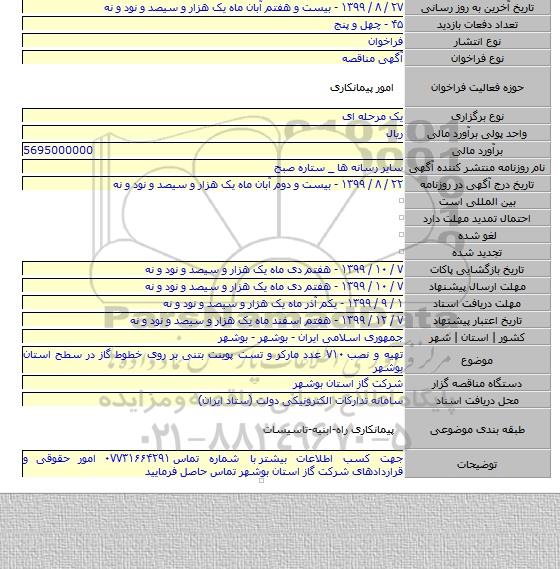 تاریخ آخرین به روز رسانی ۲۷ / ۸ / ۱۳۹۹ - بیست و هفتم آبان ماه یک هزار و سیصد و نود و نه
تعداد دفعات بازدید ۴۵ - چهل و پنج
نوع انتشار فراخوان
نوع فراخوان آگهی مناقصه
حوزه فعالیت فراخوان امور پیمانکاری
نوع برگزاری یک مرحله ای
واحد پولی برآورد مالی ریال
برآورد مالی 5695000000
نام روزنامه منتشر کننده آگهی سایر رسانه ها _ ستاره صبح
تاریخ درج آگهی در روزنامه ۲۲ / ۸ / ۱۳۹۹ - بیست و دوم آبان ماه یک هزار و سیصد و نود و نه
بین المللی است
احتمال تمدید مهلت دارد
لغو شده
تجدید شده
تاریخ بازگشایی پاکات ۷ / ۱۰ / ۱۳۹۹ - هفتم دی ماه یک هزار و سیصد و نود و نه
مهلت ارسال پیشنهاد ۷ / ۱۰ / ۱۳۹۹ - هفتم دی ماه یک هزار و سیصد و نود و نه
مهلت دریافت اسناد ۱ / ۹ / ۱۳۹۹ - یکم آذر ماه یک هزار و سیصد و نود و نه
تاریخ اعتبار پیشنهاد ۷ / ۱۲ / ۱۳۹۹ - هفتم اسفند ماه یک هزار و سیصد و نود و نه
کشور | استان | شهر جمهوری اسلامی ایران - بوشهر - بوشهر
موضوع تهیه و نصب ۷۱۰ عدد مارکر و تست پوینت بتنی بر روی خطوط گاز در سطح استان
بوشهر
دستگاه مناقصه گزار شرکت گاز استان بوشهر
محل دریافت اسناد سامانه تدارکات الکترونیکی دولت (ستاد ایران)
طبقه بندی موضوعی پیمانکاری راه-ابنیه-تاسیسات
توضیحات جهت کسب اطلاعات بیشتر با شماره تماس ۰۷۷۳۱۶۶۴۲۹۱ امور حقوقی و
قراردادهای شرکت گاز استان بوشهر تماس حاصل فرمایید
۰۲۱-۸۸۳۴۹۶۷۰-۵